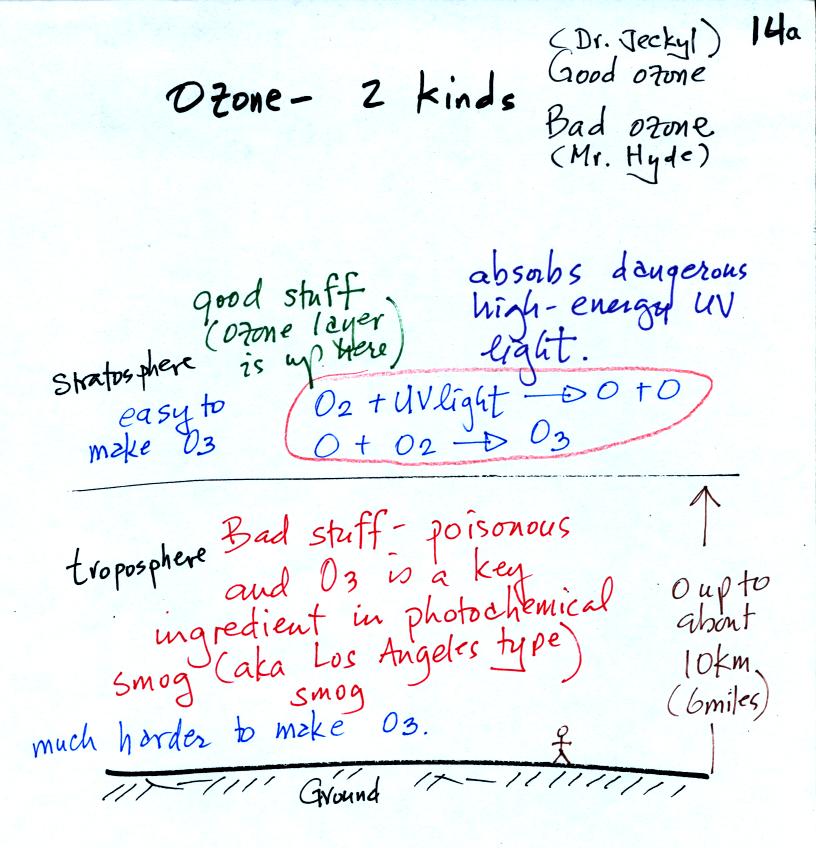 14a
(Dr. Jeckyl)
Good ozone
Ozone - 2 kinds
Bad ozone
(Mr. Hyde)
good stuff
(ozone layer
is up here)
absorbs dangerous
high-energy UV
light.
Stratosphere
easy to
make O3
O2 + UV light → O + O
O + O2 → O3
troposphere
Bad stuff - poisonous
and O3 is a key
ingredient in photochemical
smog (aka Los Angeles type)
smog
much harder to make O3.
0 up to
about
10km
(6miles)
Ground